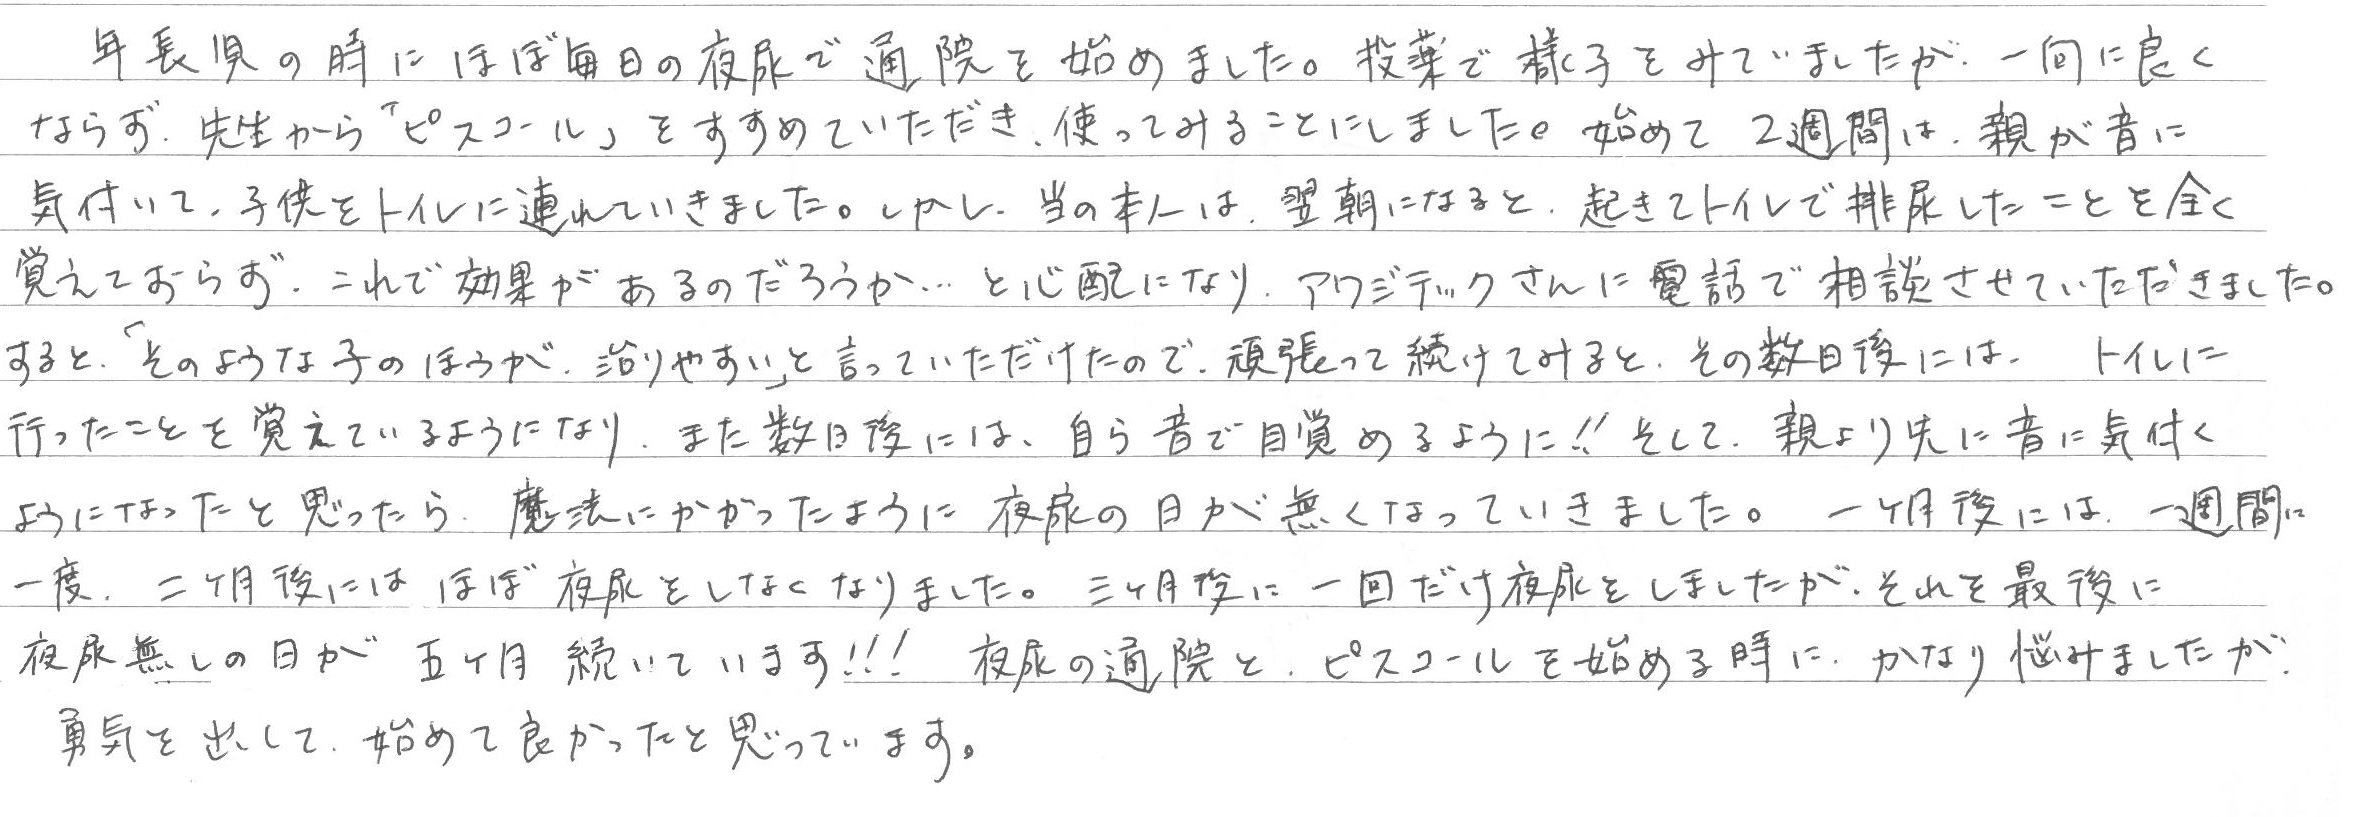 年長児の時にほぼ毎日の夜尿で通院を始めました。投薬で様子をみていましたが、一向に良く
ならず、先生から「ピスコール」をすすめていただき、使ってみることにしました。始めて2週間は、親が音に
気付いて、子供をトイレに連れていきました。しかし、当の本人は、翌朝になると、起きてトイレで排尿したことを全く
覚えておらず、これで効果があるのだろうか…と心配になり、アワジテックさんに電話で相談させていただきました。
すると、「そのような子のほうが、治りやすい」と言っていただけたので、頑張って続けてみると、その数日後には、トイレに
行ったことを覚えているようになり、また数日後には、自ら音で目覚めるように!! そして、親より先に音に気付く
ようになったと思ったら、魔法にかかったように夜尿の日が無くなっていきました。一ケ月後には、一週間に
一度、二ケ月後にはほぼ夜尿をしなくなりました。三ケ月後に一回だけ夜尿をしましたが、それを最後に
夜尿無しの日が五ケ月続いています!!! 夜尿の通院と、ピスコールを始める時に、かなり悩みましたが、
勇気を出して、始めて良かったと思っています。